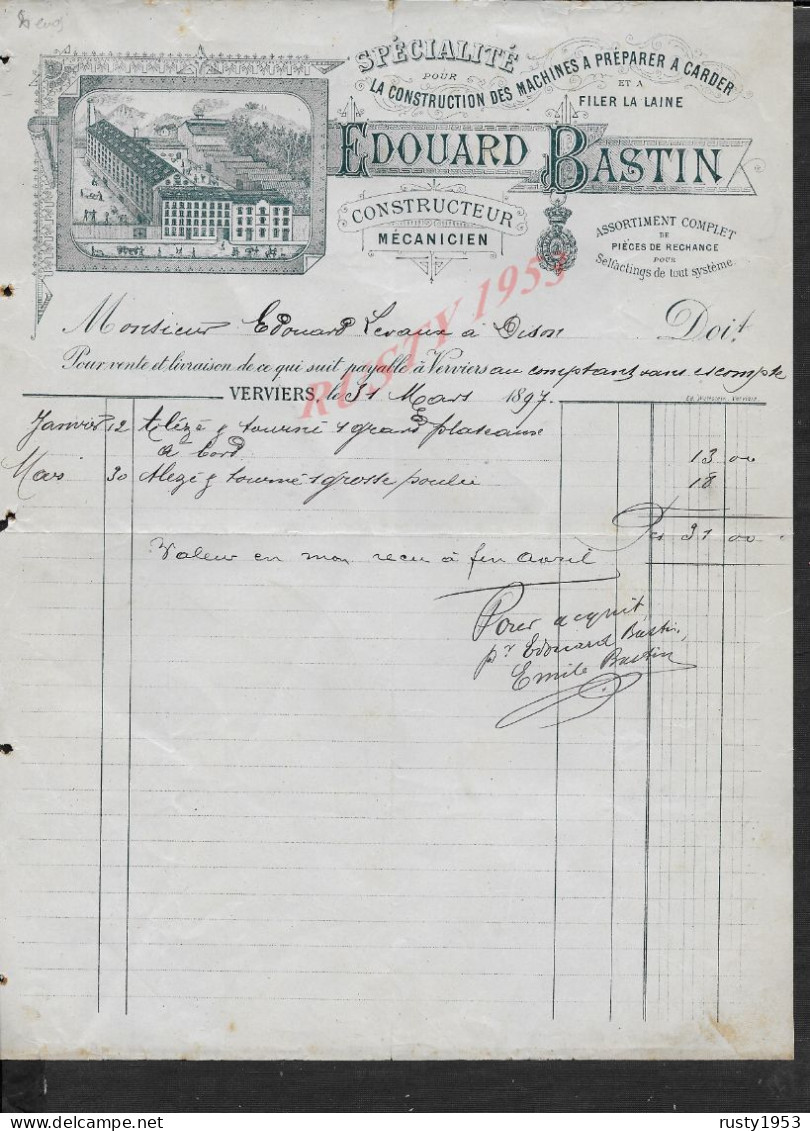 SPÉCIALITÉ
POUR
LA CONSTRUCTION DES MACHINES A PRÉPARER A CARDER
ET A
FILER LA LAINE
EDOUARD BASTIN
CONSTRUCTEUR
MÉCANICIEN
ASSORTIMENT COMPLET
DE
PIÈCES DE RECHANGE
POUR
Selfactings de tout système
RUSTY 1953
Monsieur Edouard Levaux à Dison Doit
Pour vente et livraison de ce qui suit payable à Verviers au comptant sans escompte
VERVIERS, le 31 Mars 1897.
Janvier 12 Alézé & tourné 1 grand plateaux
à bord 13 00
Mars 30 Alezé & tourné 1 grosse poulie 18
Fcs 31 00
Valeur en mon recu à fin avril
Pour acquit,
pr Edouard Bastin,
Emile Bastin
rusty1953